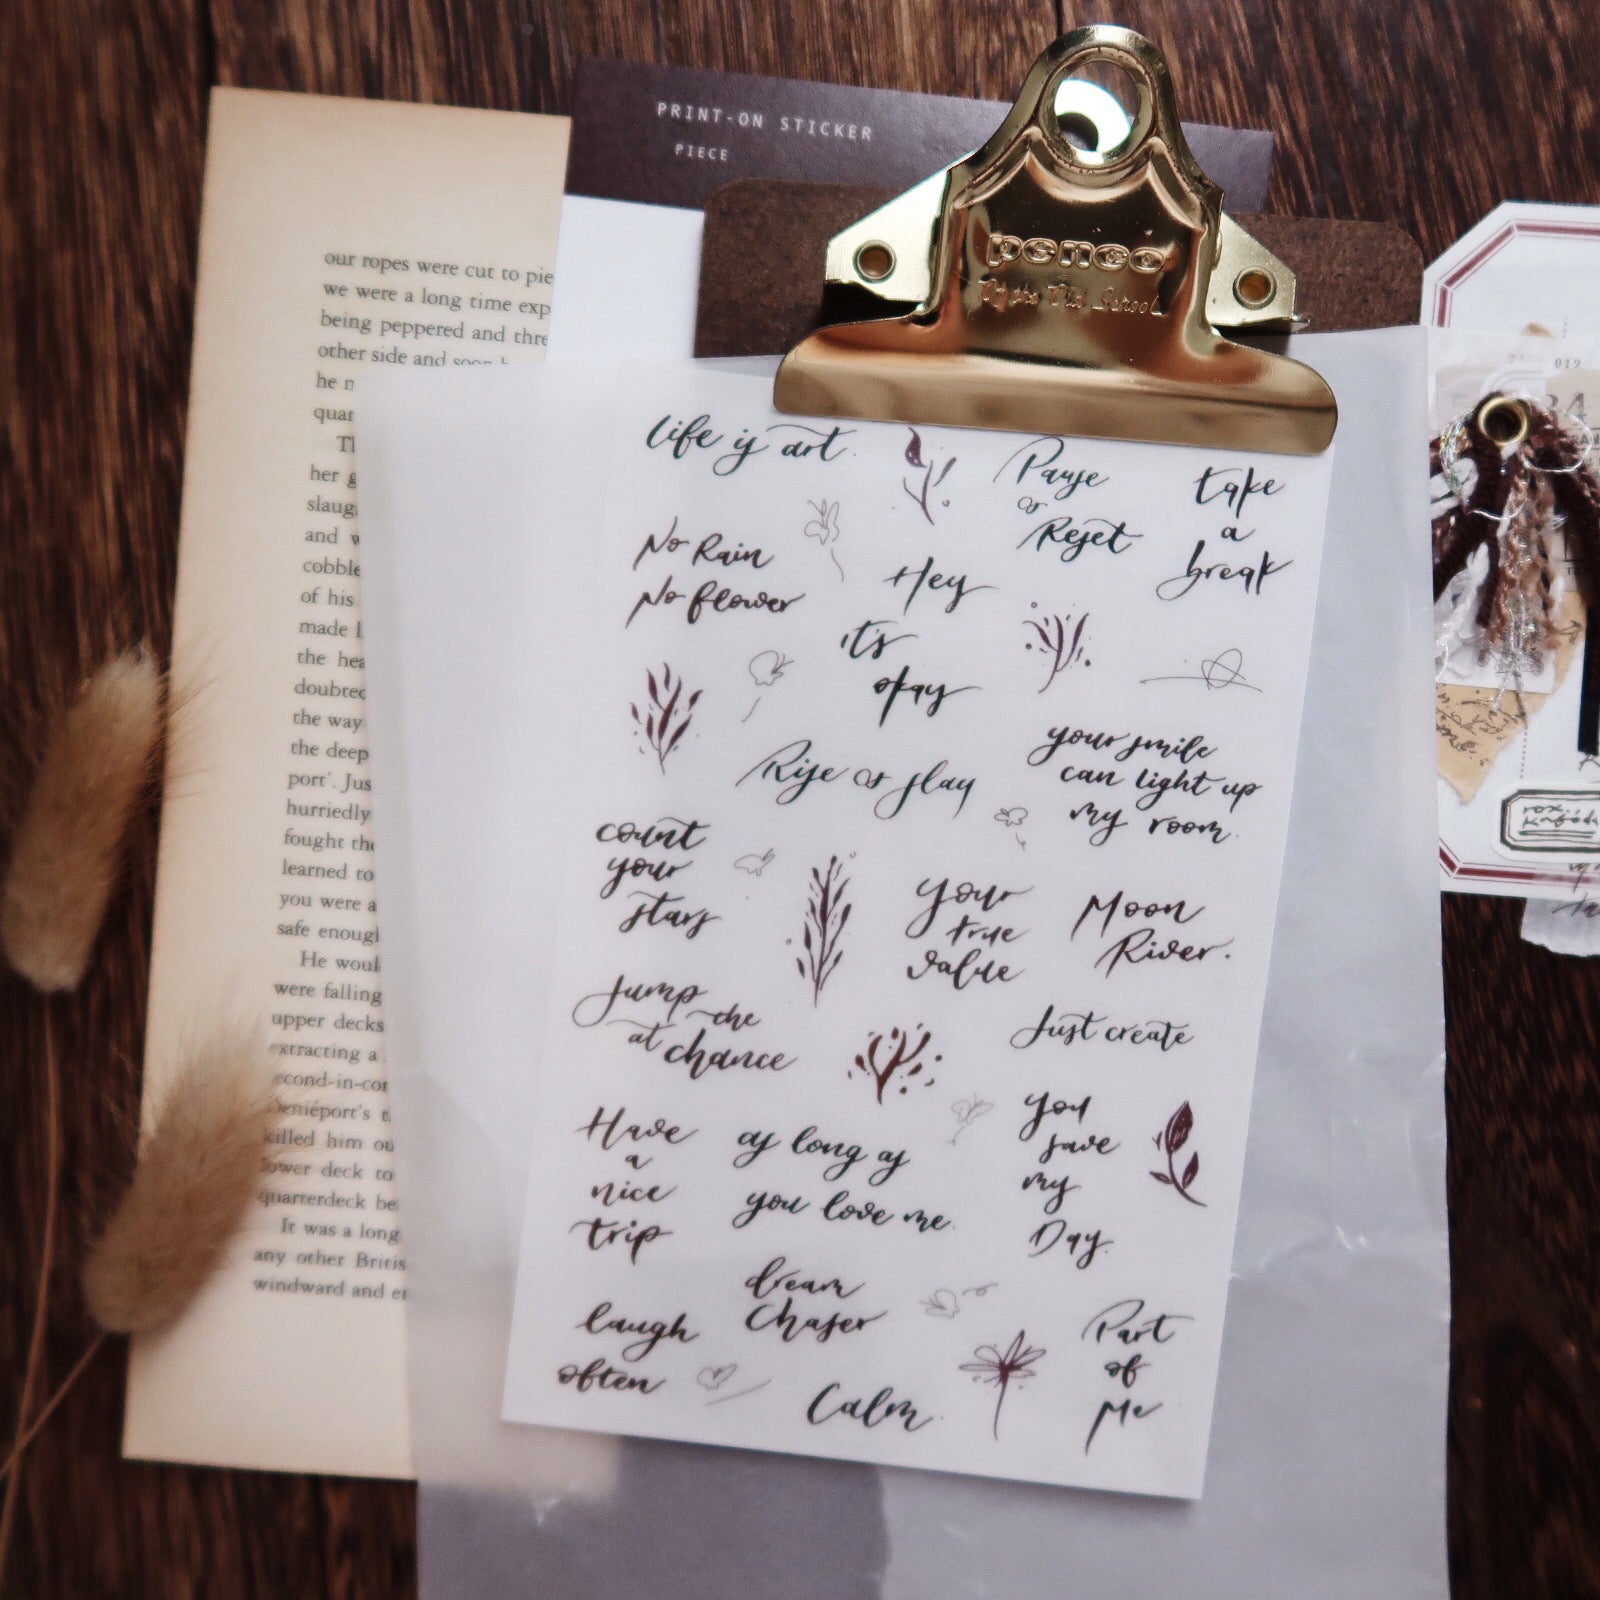 PRINT-ON STICKER
PIECE
penco
Of the Old School
our ropes were cut to pie
we were a long time exp
being peppered and thre
other side and soon
he
quar
her
slaug
and
cobble
of his
made
the hea
doubted
the way
the deep
port'. Jus
hurriedly
fought the
learned to
you were a
safe enough
He woul
were falling
upper decks
extracting a
econd-in-cor
Deniéport's
killed him ou
lower deck to
quarterdeck be
It was a long
any other Britis
windward and
life is art.
Pause
or
Reset
take
a
break
No Rain
No flower
Hey
it's
okay
Rise & slay
your smile
can light up
my room.
count
your
stars
your
true
value
Moon
River.
Jump
at the
chance
Just create
Have
a
nice
trip
as long as
you love me.
you
save
my
Day.
dream
Chaser
laugh
often
Calm.
Part
of
Me
012
24